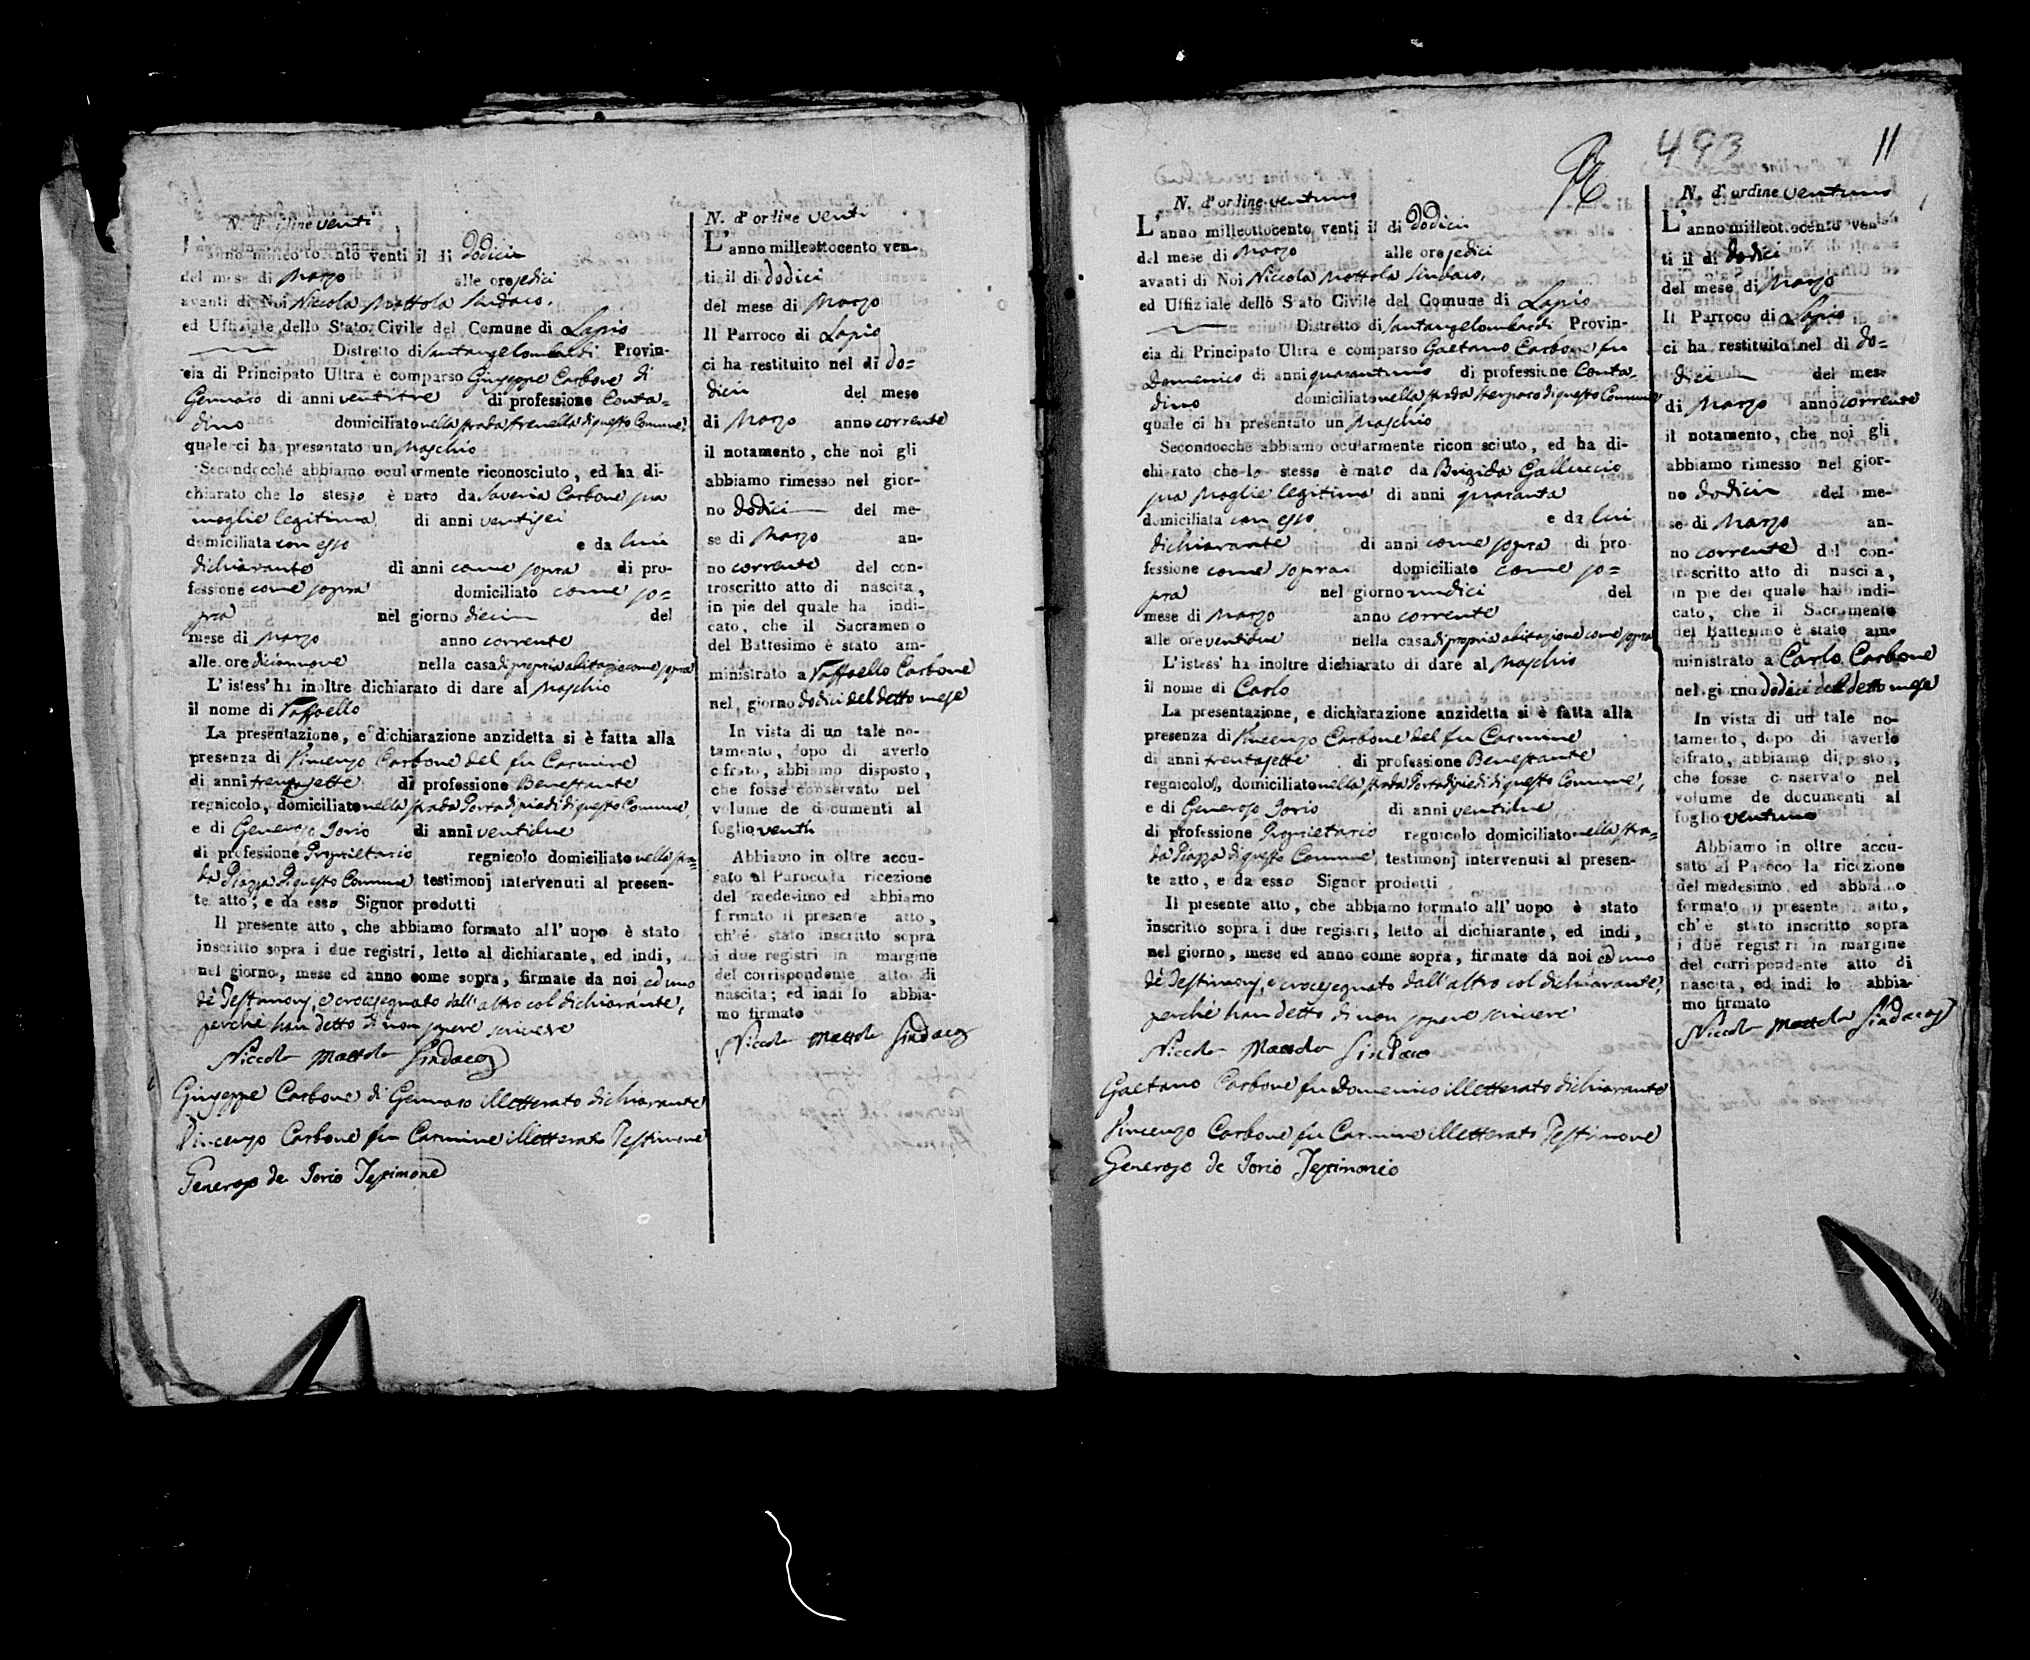 N. d'ordine venti
L'anno milleottocento venti il di Dodici
del mese di Marzo alle ore sedici
avanti di Noi Niccola Mottola Sindaco,
ed Uffiziale dello Stato Civile del Comune di Lapio
Distretto di Santangelombardi Provin-
cia di Principato Ultra è comparso Giuseppe Carbone di
Gennaro di anni ventitre di professione Conta-
dino domiciliato nella strada di questo Comune,
quale ci ha presentato un Maschio
Secondocché abbiamo ocularmente riconosciuto, ed ha di-
chiarato che lo stesso è nato da Saveria Carbone sua
moglie legitima di anni ventisei
domiciliata con esso e da lui
dichiarante di anni come sopra di pro-
fessione come sopra domiciliato come so-
pra nel giorno dieci del
mese di Marzo anno corrente
alle ore diciannove nella casa di propria abitazione come sopra
L'istess' ha inoltre dichiarato di dare al Maschio
il nome di Raffaello
La presentazione, e dichiarazione anzidetta si è fatta alla
presenza di Vincenzo Carbone del fu Carmine
di anni trentasette di professione Benestante
regnicolo, domiciliato nella strada Porta di piedi di questo Comune,
e di Generoso Iorio di anni ventidue
di professione Proprietario regnicolo domiciliato nella stra-
da Piazza di questo Comune testimonj intervenuti al presen-
te atto, e da esso Signor prodotti
Il presente atto, che abbiamo formato all'uopo è stato
inscritto sopra i due registri, letto al dichiarante, ed indi,
nel giorno, mese ed anno come sopra, firmate da noi ed uno
de' Testimonj, e crocesegnato dall'altro col dichiarante,
perché han detto di non sapere scrivere
Niccola Mottola Sindaco
Giuseppe Carbone di Gennaro illetterato dichiarante
Vincenzo Carbone fu Carmine illetterato Testimone
Generoso de Iorio Testimone
N. d'ordine venti
L'anno milleottocento ven-
ti il di dodici
del mese di Marzo
Il Parroco di Lapio
ci ha restituito nel di do-
dici del mese
di Marzo anno corrente
il notamento, che noi gli
abbiamo rimesso nel gior-
no dodici del me-
se di Marzo an-
no corrente del con-
troscritto atto di nascita,
in pie del quale ha indi-
cato, che il Sacramento
del Battesimo è stato am-
ministrato a Raffaello Carbone
nel giorno dodici del detto mese
In vista di un tale no-
tamento, dopo di averlo
cifrato, abbiamo disposto,
che fosse conservato nel
volume de documenti al
foglio venti
Abbiamo in oltre accu-
sato al Paroco la ricezione
del medesimo ed abbiamo
formato il presente atto,
ch'é stato inscritto sopra
i due registri in margine
del corrispondente atto di
nascita; ed indi lo abbia-
mo firmato
Niccola Mottola Sindaco
493
11
N. d'ordine ventuno
L'anno milleottocento venti il di Dodici
del mese di Marzo alle ore sedici
avanti di Noi Niccola Mottola Sindaco,
ed Uffiziale dello Stato Civile del Comune di Lapio
Distretto di Santangelombardi Provin-
cia di Principato Ultra e comparso Gaetano Carbone fu
Domenico di anni quarantuno di professione Conta-
dino domiciliato nella strada di questo Comune
quale ci ha presentato un Maschio
Secondocche abbiamo ocularmente riconosciuto, ed ha di-
chiarato che lo stesso è nato da Brigida Galluccio
sua Moglie legitima di anni quaranta
domiciliata con esso e da lui
dichiarante di anni come sopra di pro
fessione come sopra domiciliato come so-
pra nel giorno undici del
mese di Marzo anno corrente
alle ore ventidue nella casa di propria abitazione come sopra
L'istess' ha inoltre dichiarato di dare al Maschio
il nome di Carlo
La presentazione, e dichiarazione anzidetta si è fatta alla
presenza di Vincenzo Carbone del fu Carmine
di anni trentasette di professione Benestante
regnicolo, domiciliato nella strada Porta di piedi di questo Comune,
e di Generoso Iorio di anni ventidue
di professione Proprietario regnicolo domiciliato nella stra-
da Piazza di questo Comune testimonj intervenuti al presen-
te atto, e da esso Signor prodotti
Il presente atto, che abbiamo formato all'uopo è stato
inscritto sopra i due registri, letto al dichiarante, ed indi,
nel giorno, mese ed anno come sopra, firmate da noi ed uno
de' Testimonj, e crocesegnato dall'altro col dichiarante,
perché han detto di non sapere scrivere
Niccola Mottola Sindaco
Gaetano Carbone fu Domenico illetterato dichiarante
Vincenzo Carbone fu Carmine illetterato Testimone
Generoso de Iorio Testimonio
N. d'ordine ventuno
L'anno milleottocento ven
ti il di dodici
del mese di Marzo
Il Parroco di Lapio
ci ha restituito nel di do-
dici del mese
di Marzo anno corrente
il notamento, che noi gli
abbiamo rimesso nel gior-
no dodici del me-
se di Marzo an-
no corrente del con-
troscritto atto di nascita,
in pie del quale ha indi-
cato, che il Sacramento
del Battesimo è stato am-
ministrato a Carlo Carbone
nel giorno dodici del detto mese
In vista di un tale no-
tamento, dopo di averlo
cifrato, abbiamo disposto,
che fosse conservato nel
volume de documenti al
foglio ventuno
Abbiamo in oltre accu-
sato al Paroco la ricezione
del medesimo ed abbiamo
formato il presente atto,
ch'è stato inscritto sopra
i due registri in margine
del corrispondente atto di
nascita, ed indi lo abbia-
mo firmato
Niccola Mottola Sindaco